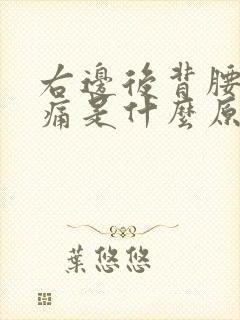 右邊後背腰
痛是什麼原
葉悠悠